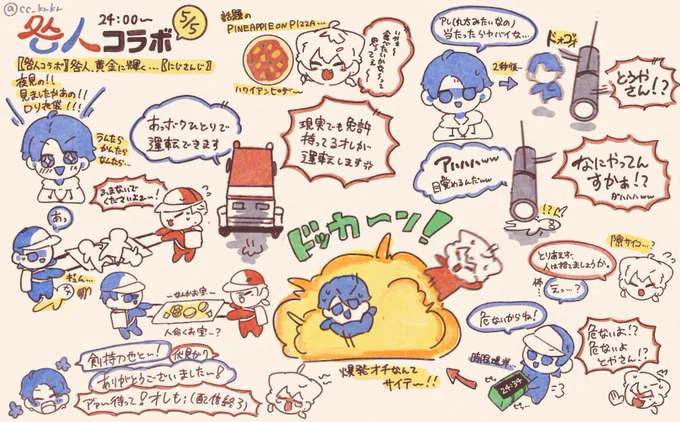 @cc_knkn
24:00〜
5/5
咎人コラボ
【【咎人コラボ】咎人、黄金に輝く…【にじさんじ】】
夜見の!!
見ましたかあの!!
ロリ衣装!!!
うんたら
かんたら
なんたら…
話題の
PINEAPPLE ON PIZZA…
ハワイアンピザデー〜
いやぁ〜
食べたいかもって
思ってぇ
あっボクひとりで
運転できます
現実でも免許
持ってるオレが
運転します
アレ(丸太みたいなの)
当たったらヤバイな…
2秒後…
ドォゴォ
とうや
さん!?
アハハハww
目覚めるんだww
なにやってん
すかぁ!?
ダハハハww
!?
あっ
ふまないで
くださいよぉ〜!
粒ん…
…なんかお宝…
人命くお宝…?
ドッカーン!
爆発オチなんて
サイテー!!
とりあえず、
人は捨てましょうか。
隠サイコ…?
怖
えっ…?
危ないからね!
時限爆弾…
24:34
ピッ
ピッ…
危ないよ!?
危ないよ
とやさん!?
剣持刀也と〜!
伏見ガク
ありがとうございました〜!
アァ〜待って!オレも;(配信終了)